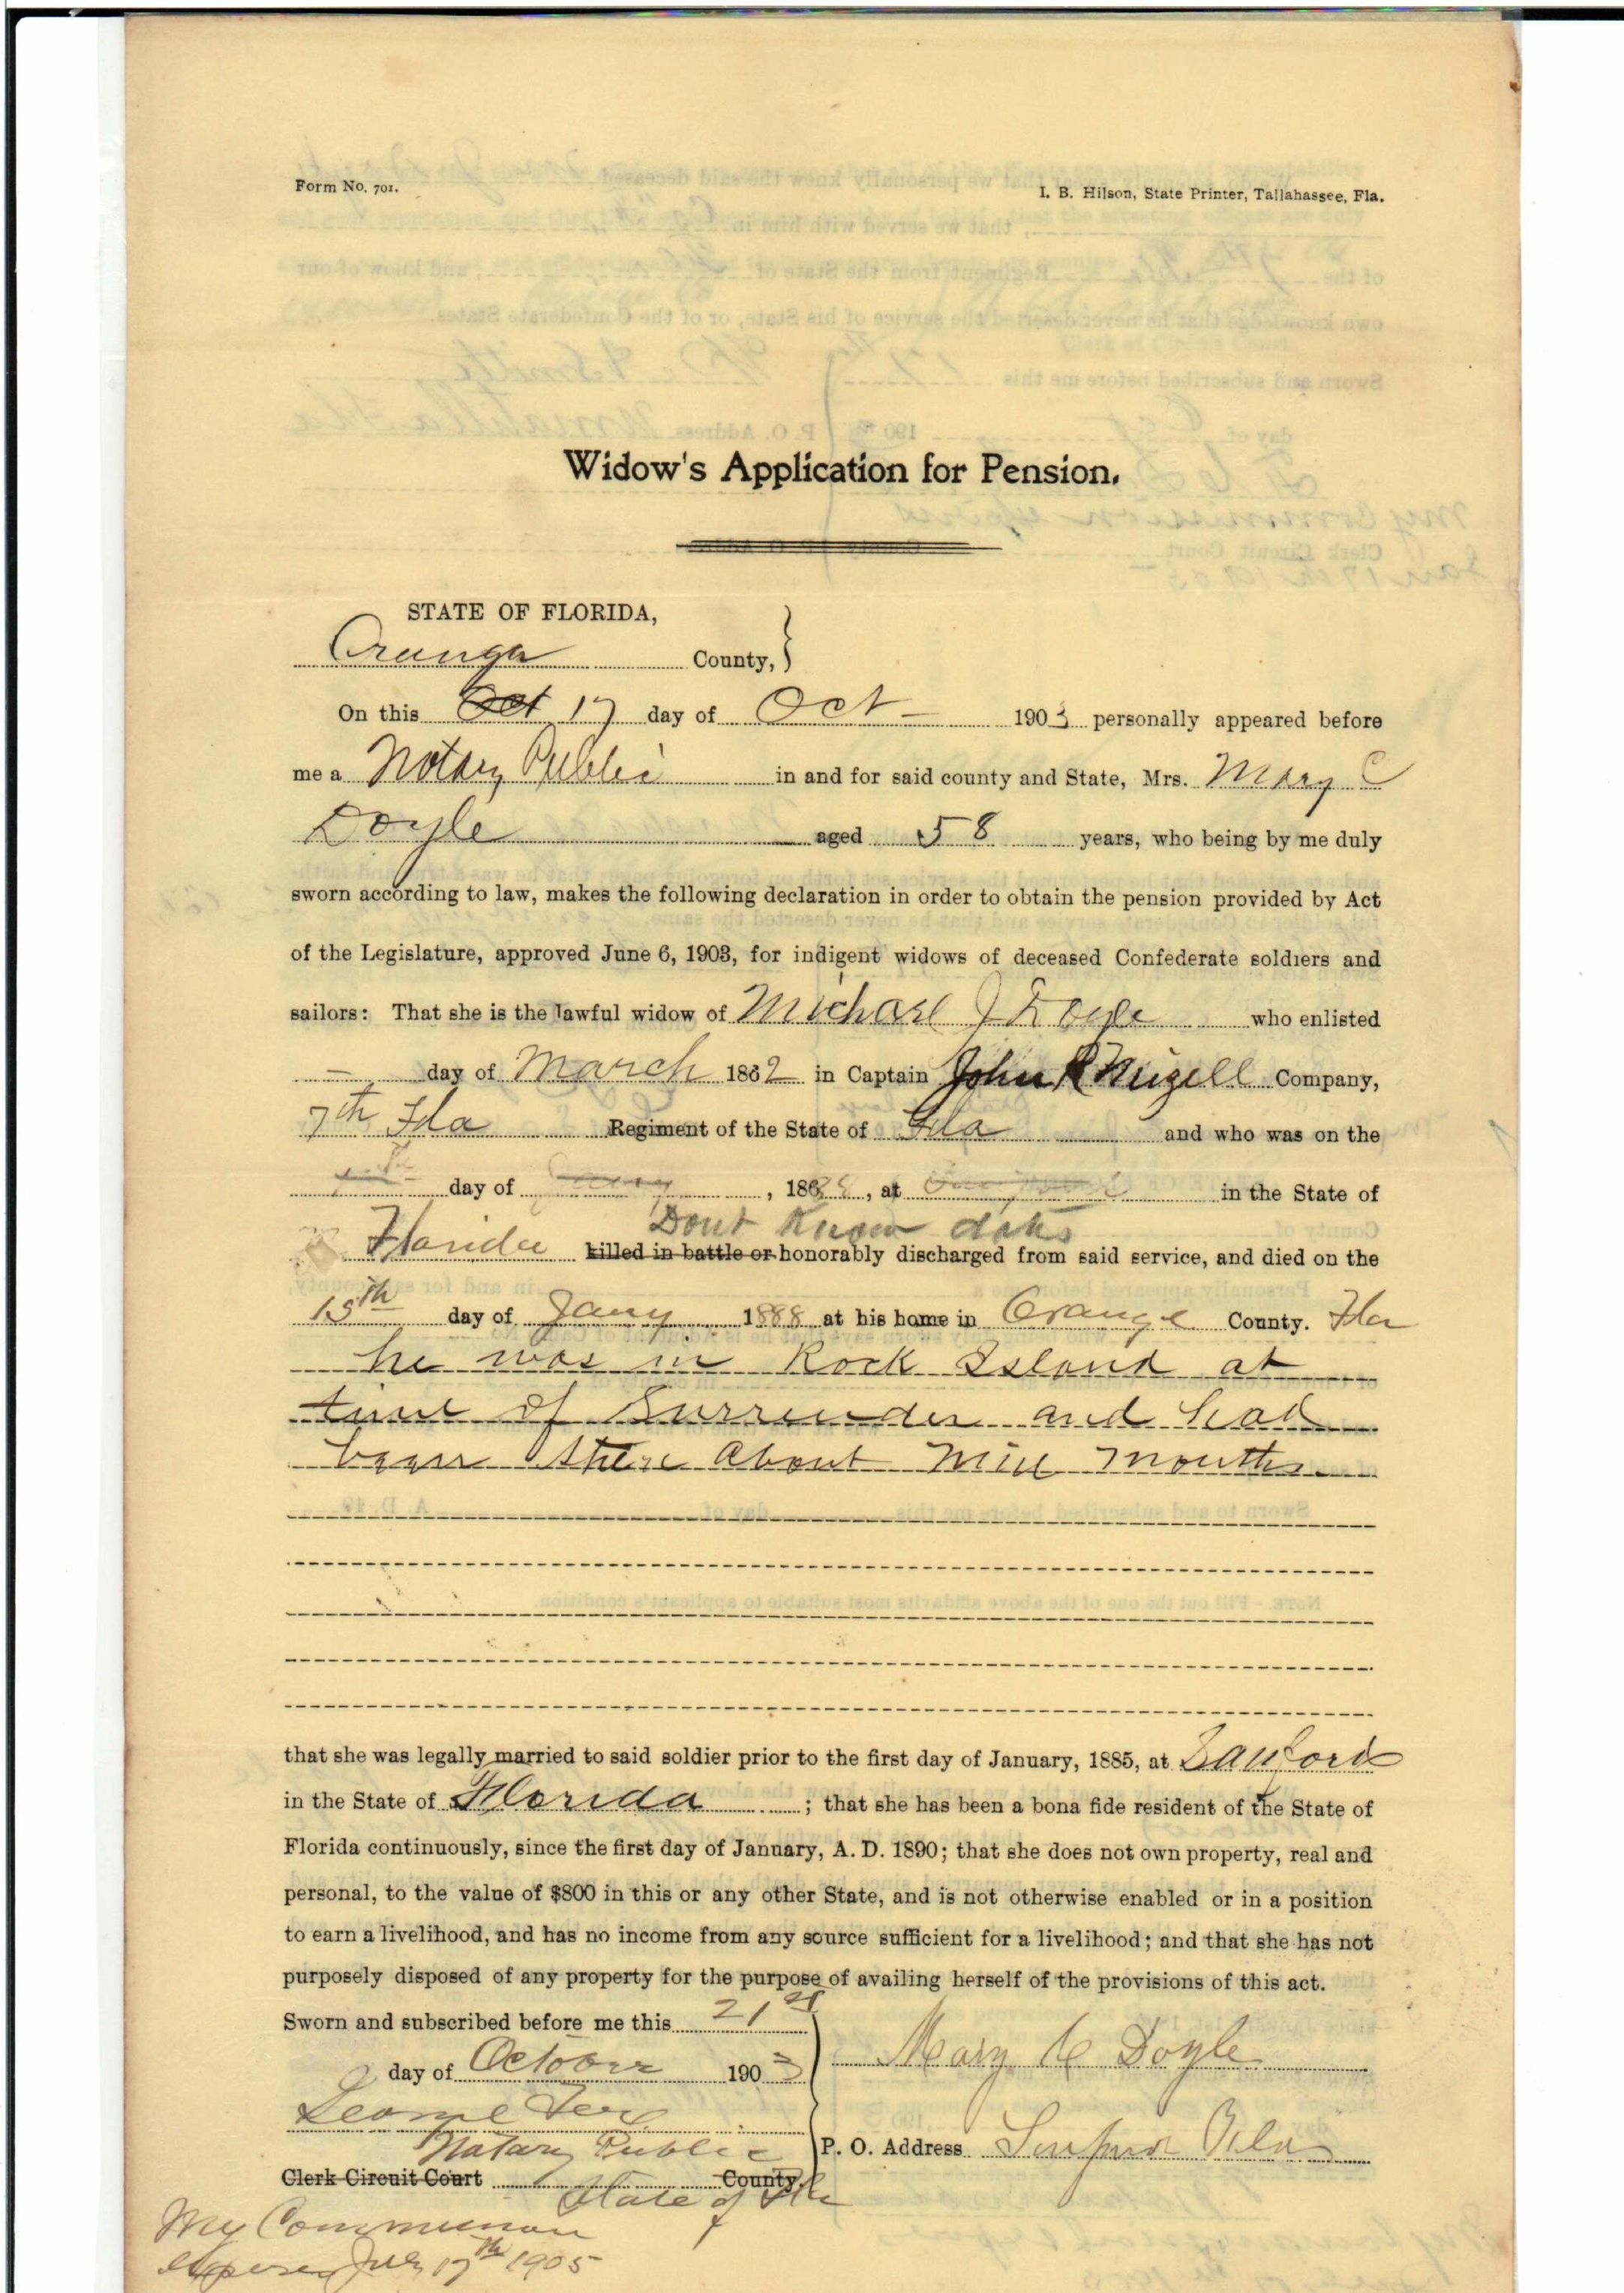 Form No. 701.
I. B. Hilson, State Printer, Tallahassee, Fla.
Widow's Application for Pension.
STATE OF FLORIDA,
Orange County,
On this Oct 17 day of Oct 1903 personally appeared before
me a Notary Public in and for said county and State, Mrs. Mary C
Doyle aged 58 years, who being by me duly
sworn according to law, makes the following declaration in order to obtain the pension provided by Act
of the Legislature, approved June 6, 1903, for indigent widows of deceased Confederate soldiers and
sailors: That she is the lawful widow of Michael J Doyle who enlisted
— day of March 1862 in Captain John R Mizell Company,
7th Fla Regiment of the State of Fla and who was on the
day of , 186 , at in the State of
Dont Know date
Florida killed in battle or honorably discharged from said service, and died on the
15th day of Jany 1888 at his home in Orange County. Fla
he was in Rock Island at
time of Surrender and had
been there about nine months
that she was legally married to said soldier prior to the first day of January, 1885, at Sanford
in the State of Florida ; that she has been a bona fide resident of the State of
Florida continuously, since the first day of January, A. D. 1890; that she does not own property, real and
personal, to the value of $800 in this or any other State, and is not otherwise enabled or in a position
to earn a livelihood, and has no income from any source sufficient for a livelihood; and that she has not
purposely disposed of any property for the purpose of availing herself of the provisions of this act.
Sworn and subscribed before me this 21st
day of October 1903
Mary C Doyle
Notary Public
P. O. Address Sanford Fla
Clerk Circuit Court County.
State of Fla
My Commission
expires July 17th 1905